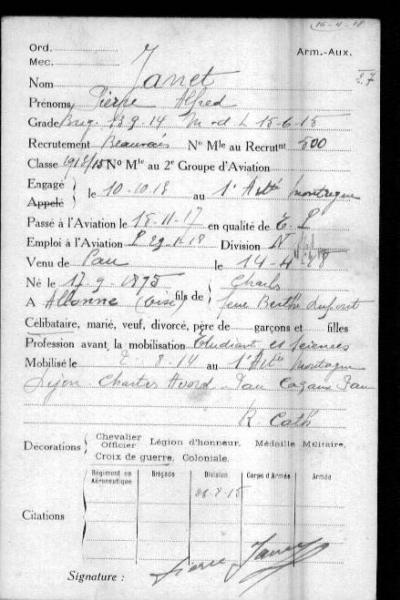 16-4-18
Ord.
Mec.
J
Arm.-Aux.
27
Nom Janet
Prénoms Pierre Alfred
Grade Brig 23-9-14 M od L 15-6-15
Recrutement Beauvais N° Mle au Recrutnt 500
Classe 1915 N° Mle au 2e Groupe d'Aviation
Engagé
Appelé le 10-10-13 au 1° Artie montagne
Passé à l'Aviation le 15-11-17 en qualité de E. P.
Emploi à l'Aviation P Division N
Venu de Pau le 14-4-18
Né le 17-9-1895 fils de Charles
A Allonne (Oise) et de Berthe Dupont
Célibataire, marié, veuf, divorcé, père de garçons et filles
Profession avant la mobilisation Etudiant es sciences
Mobilisé le 2-8-14 au 1° Artie Montagne
Lyon Chartres Avord Pau Cazaux Pau
R. Cath
Décorations Chevalier Officier Légion d'honneur, Médaille Militaire,
Croix de guerre, Coloniale.
Régiment ou Aéronautique Brigade Division Corps d'Armée Armée
8-15
Citations
Signature : Pierre Janet